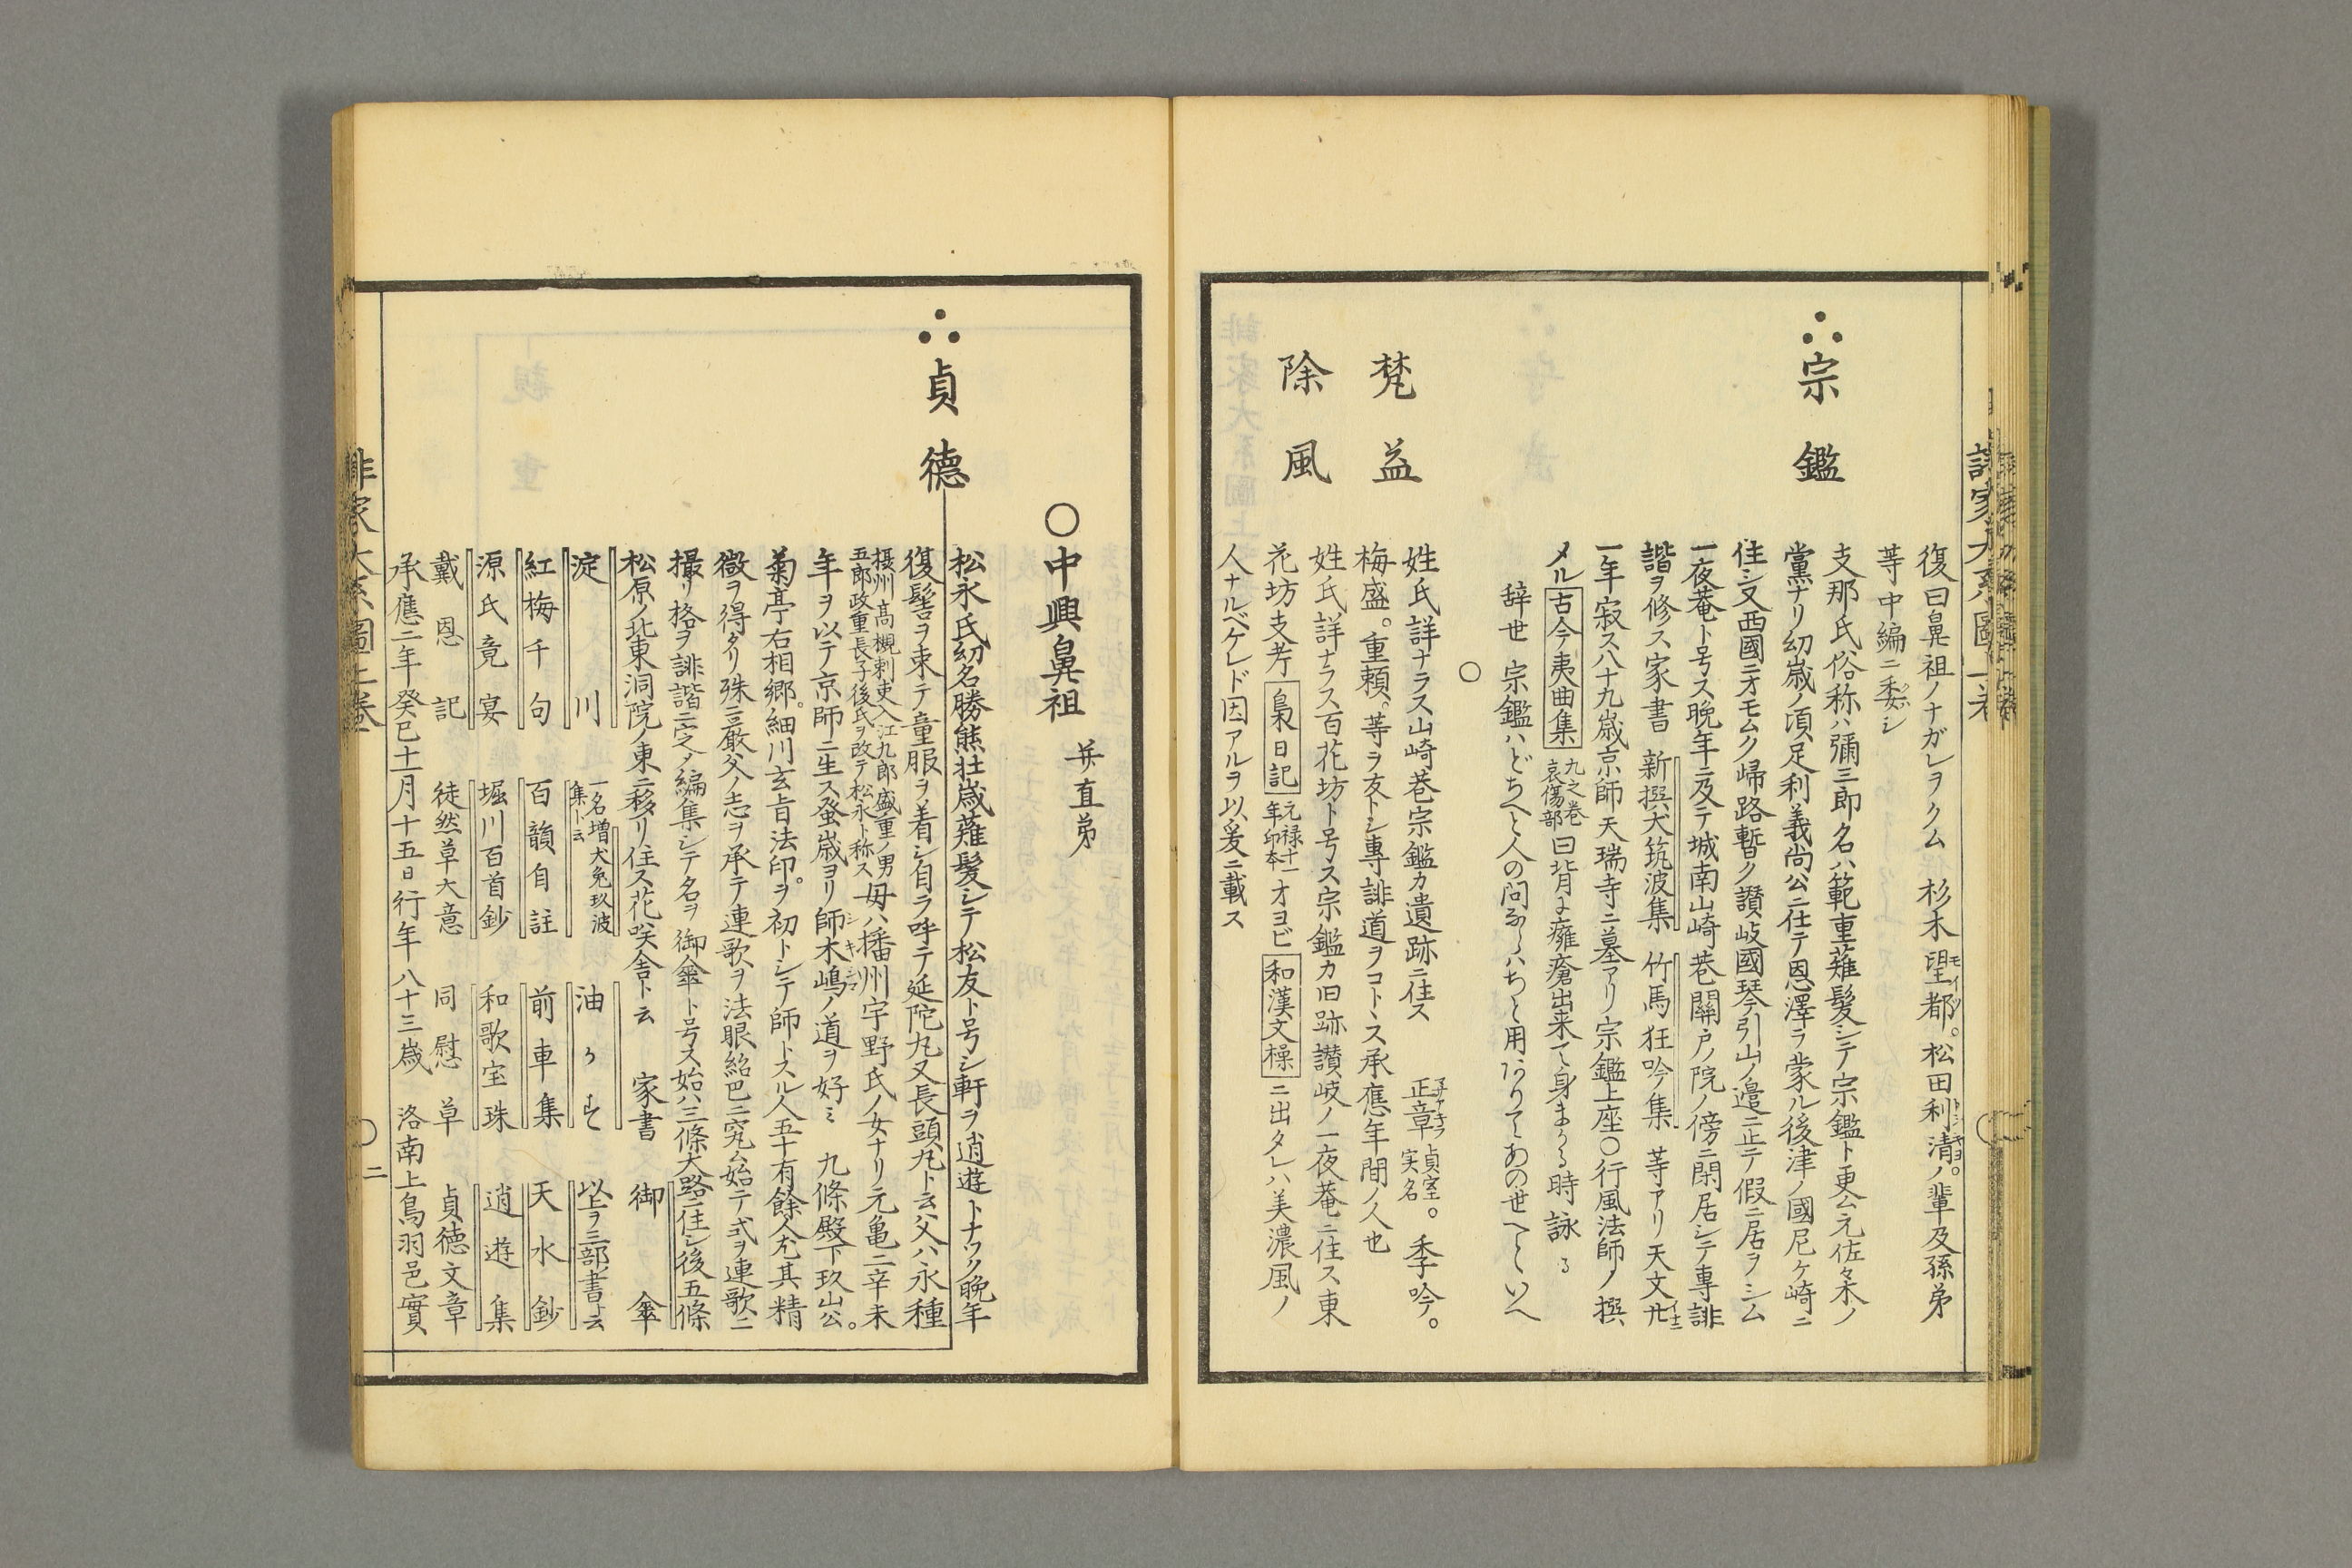 復曰鼻祖ノナガレヲクム 杉木望都。松田利清。ノ輩及孫弟
等中編ニ委シ
∴宗鑑
支那氏俗称ハ彌三郎名ハ範重薙髪シテ宗鑑ト更公元佐々木ノ
黨ナリ幼歳ノ頃足利義尚公ニ仕テ恩澤ヲ蒙ル後津ノ國尼ケ崎ニ
住シ又西國ニオモムク帰路暫ク讃岐國琴引山ノ邉ニ止テ假ニ居ヲシム
一夜菴ト号ス晩年ニ及テ城南山崎巷關戸ノ院ノ傍ニ閑居シテ專誹
諧ヲ修ス家書 新撰犬筑波集 竹馬狂吟集 等アリ天文廿二イ
一年寂ス八十九歳京師天瑞寺ニ墓アリ宗鑑上座〇行風法師ノ撰
メル古今夷曲集九之巻哀傷部曰背よ癰瘡出来て身まかる時詠る
辞世 宗鑑ハどちへと人の問ならハちと用ありてあの世へといへ
〇
梵益
姓氏詳ナラス山崎巷宗鑑カ遺跡ニ住ス 正章貞室実名。季吟。
梅盛。重頼。等ヲ友トシ專誹道ヲコトヽス承應年間ノ人也
除風
姓氏詳ナラス百花坊ト号ス宗鑑カ旧跡讃岐ノ一夜菴ニ住ス東
花坊支考梟日記元禄十一年印本オヨビ和漢文操ニ出タレハ美濃風ノ
人ナルベケレド因アルヲ以爰ニ載ス
〇中興鼻祖 并直弟
∴貞德
松永氏幼名勝熊壮歳薙髪シテ松友ト号シ軒ヲ逍遊トナツク晩年
復髻ヲ束テ童服ヲ着シ自ラ呼テ延陀丸又長頭丸ト云父ハ永種
摂州高槻刺吏入江九郎盛重ノ男五郎政重長子後氏ヲ改テ松永ト称ス母ハ播州宇野氏ノ女ナリ元亀二辛未
年ヲ以テ京師ニ生ス蚤歳ヨリ師木嶋ノ道ヲ好ミ 九條殿下玖山公。
菊亭右相郷。細川玄旨法印。ヲ初トシテ師トスル人五十有餘人尤其精
微ヲ得タリ殊ニ嚴父ノ志ヲ承テ連歌ヲ法眼紹巴ニ究ム始テ式ヲ連歌ニ
撮リ格ヲ誹諧ニ定メ編集シテ名ヲ御傘ト号ス始ハ三條大路ニ住シ後五條
松原ノ北東洞院ノ東ニ移リ住ス花咲舎ト云 家書 御傘
淀川 一名増犬兔玖波集ト云 油かす 以上ヲ三部書ト云
紅梅千句 百韻自註 前車集 天水鈔
源氏竟宴 堀川百首鈔 和歌宝珠 逍遊集
戴恩記 徒然草大意 同慰草 貞徳文章
承應二年癸巳十一月十五日行年八十三歳 洛南上鳥羽邑實
誹家大系圖上巻 〇二